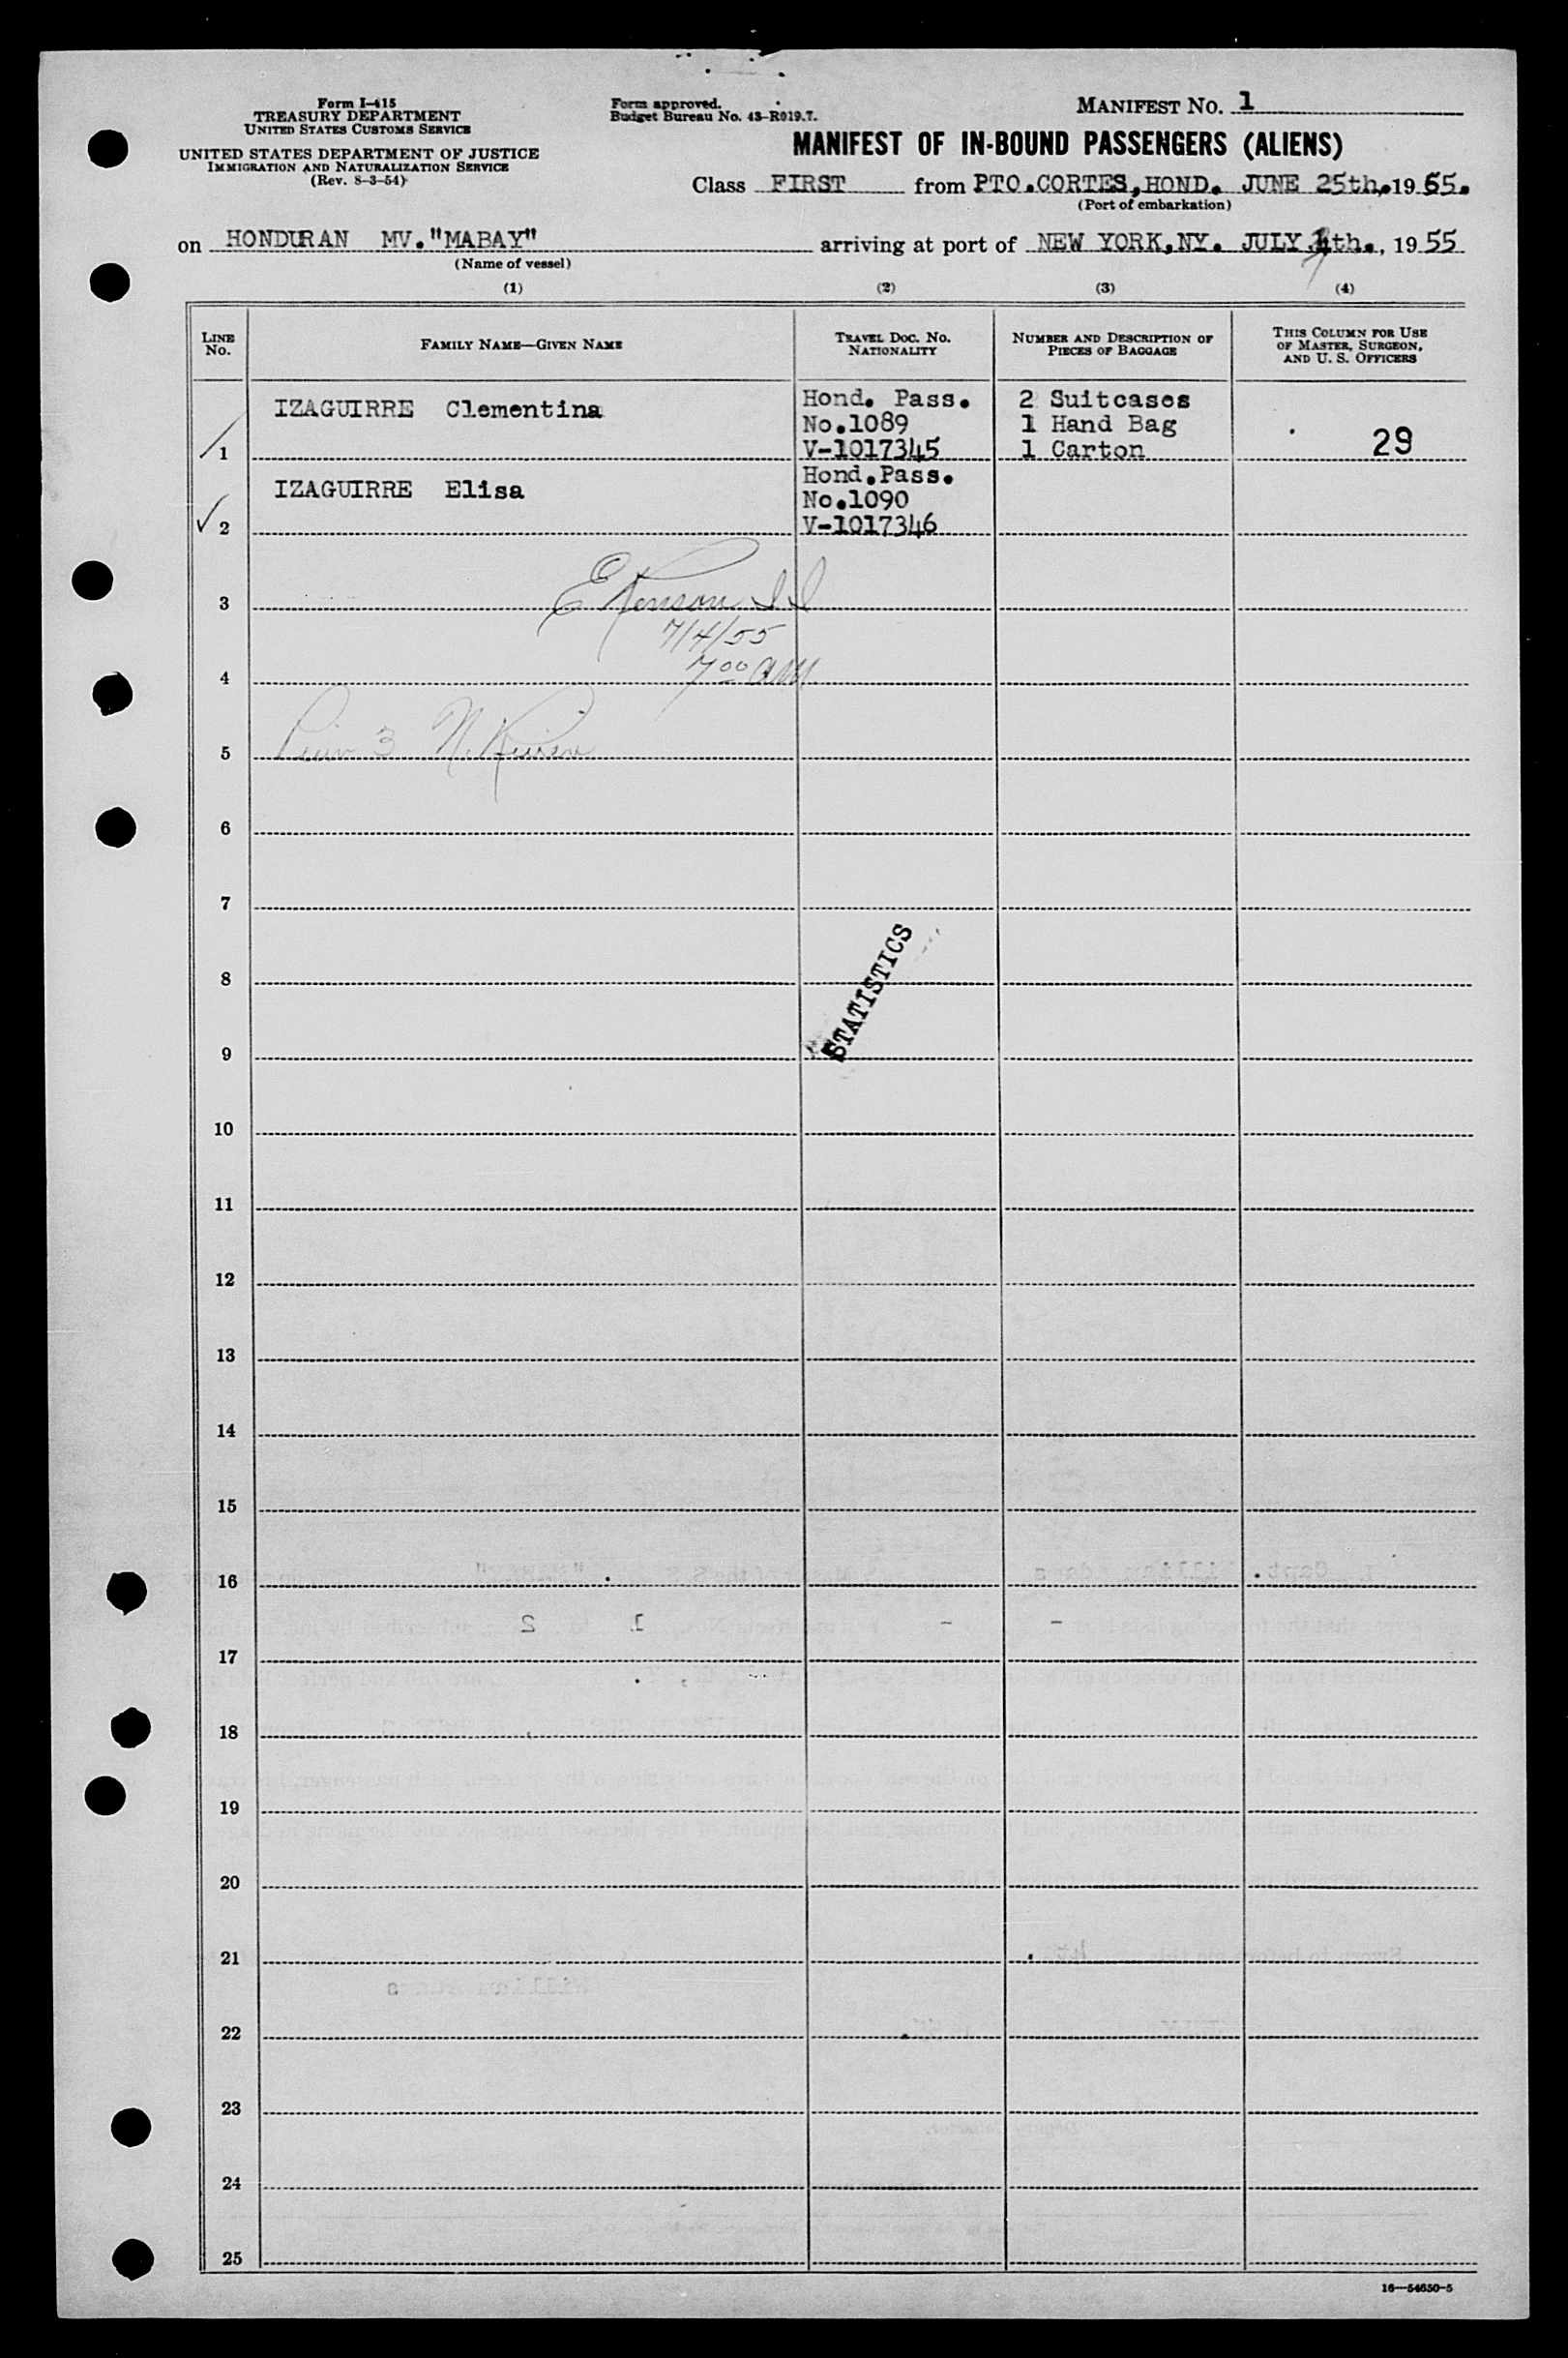 Form I-415
TREASURY DEPARTMENT
UNITED STATES CUSTOMS SERVICE
UNITED STATES DEPARTMENT OF JUSTICE
IMMIGRATION AND NATURALIZATION SERVICE
(Rev. 8-3-54)
Form approved.
Budget Bureau No. 43-R019.7.
MANIFEST NO. 1
MANIFEST OF IN-BOUND PASSENGERS (ALIENS)
Class FIRST from PTO.CORTES,HOND. JUNE 25th, 1955.
(Port of embarkation)
on HONDURAN MV."MABAY" arriving at port of NEW YORK,NY. JULY 4th., 1955
(Name of vessel)
(1) (2) (3) (4)
LINE NO.
FAMILY NAME—GIVEN NAME
TRAVEL DOC. NO.
NATIONALITY
NUMBER AND DESCRIPTION OF
PIECES OF BAGGAGE
THIS COLUMN FOR USE
OF MASTER, SURGEON,
AND U. S. OFFICERS
1 IZAGUIRRE Clementina
Hond. Pass.
No.1089
V-1017345
2 Suitcases
1 Hand Bag
1 Carton
29
2 IZAGUIRRE Elisa
Hond.Pass.
No.1090
V-1017346
3
7/4/55
4 7 00 AM
5 3 N.
6
7
8
STATISTICS
9
10
11
12
13
14
15
16
17
18
19
20
21
22
23
24
25
16—54650-5